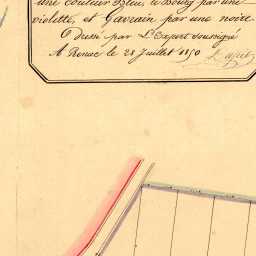 une couleur Bleu, le Bourg par une
violette, et Gavrain par une noire.
Dressé par L'Expert soussigné
A Renac le 28 Juillet 1850